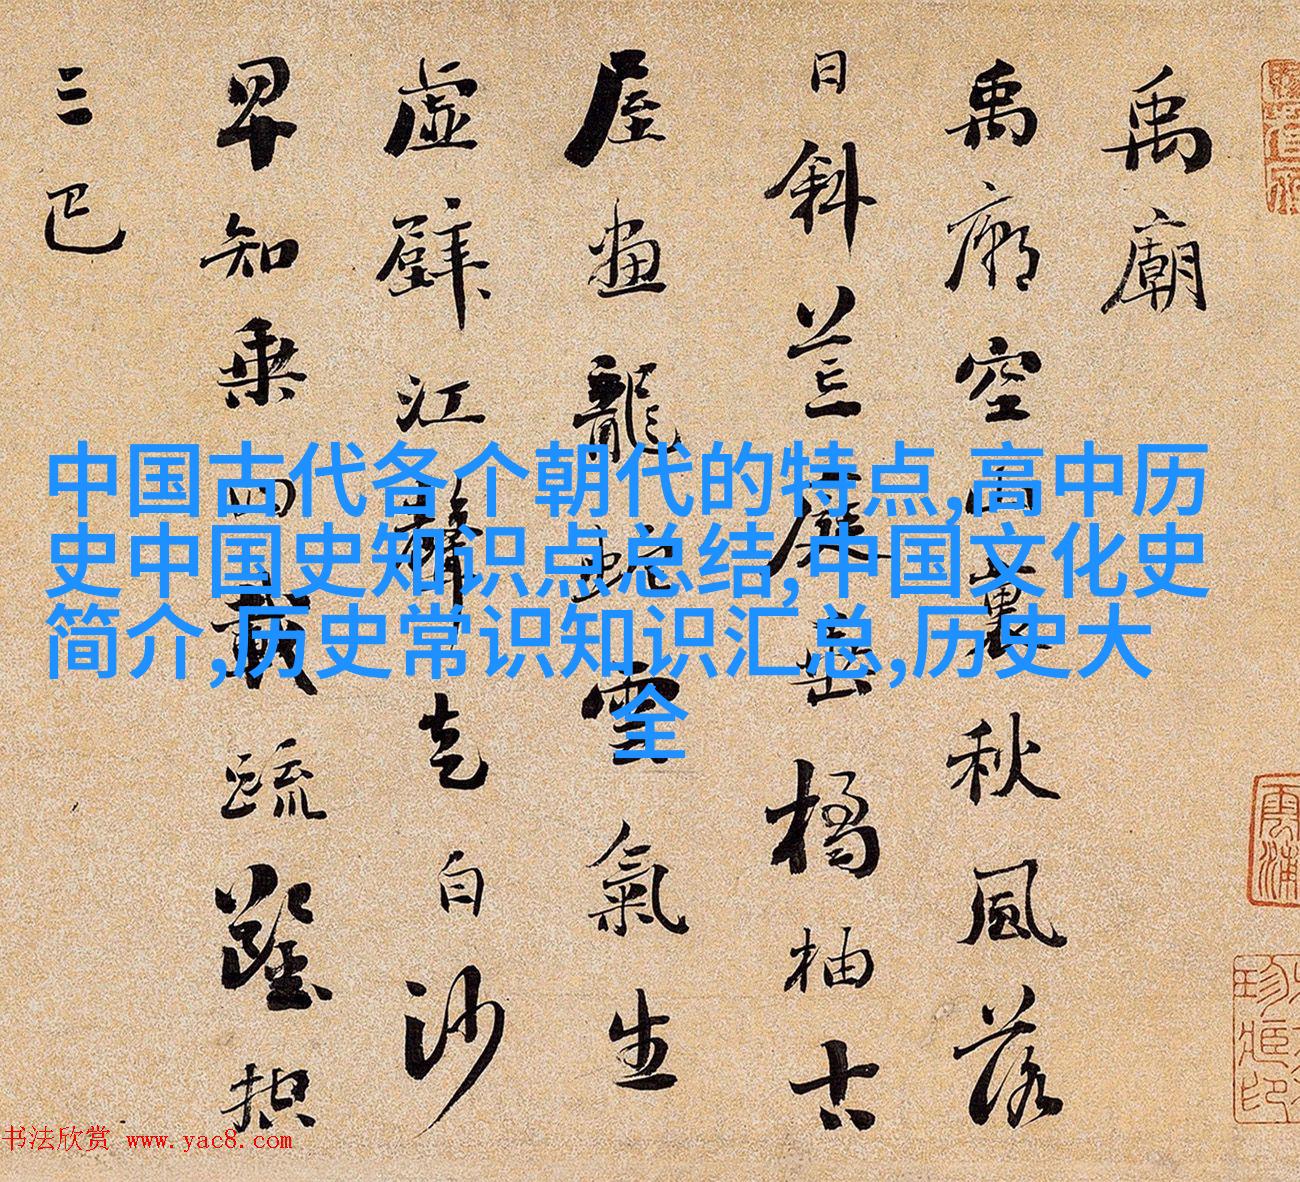 禹廟
禹廟空山裏秋風落
日斜荒庭垂橘柚古
屋畫龍蛇雲氣生
虛壁江聲走白沙
早知乘四載疏鑿控
三巴
中国古代各个朝代的特点,高中历
史中国史知识点总结,中国文化史
简介,历史常识知识汇总,历史大
全
书法欣赏 www.yac8.com